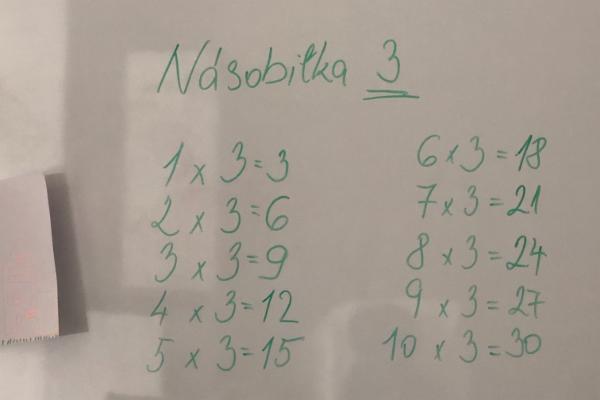 Násobilka 3
1 x 3 = 3
2 x 3 = 6
3 x 3 = 9
4 x 3 = 12
5 x 3 = 15
6 x 3 = 18
7 x 3 = 21
8 x 3 = 24
9 x 3 = 27
10 x 3 = 30